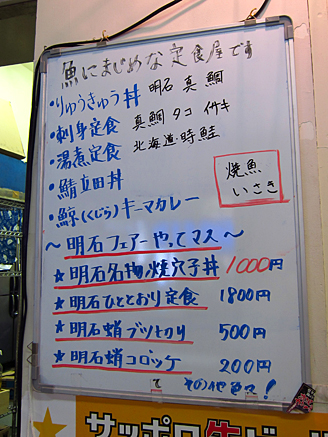 魚にまじめな定食屋です
・りゅうきゅう丼 明石 真鯛
・刺身定食 真鯛 タコ イサキ
・湯煮定食 北海道・時鮭
・鯖立田丼
・鯨(くじら)キーマカレー
焼魚
いさき
〜明石フェアーやってマス〜
★明石名物・焼穴子丼 1000円
★明石ひととおり定食 1800円
★明石蛸ブツ切り 500円
★明石蛸コロッケ 200円
その他色々!
サッポロ生ビール